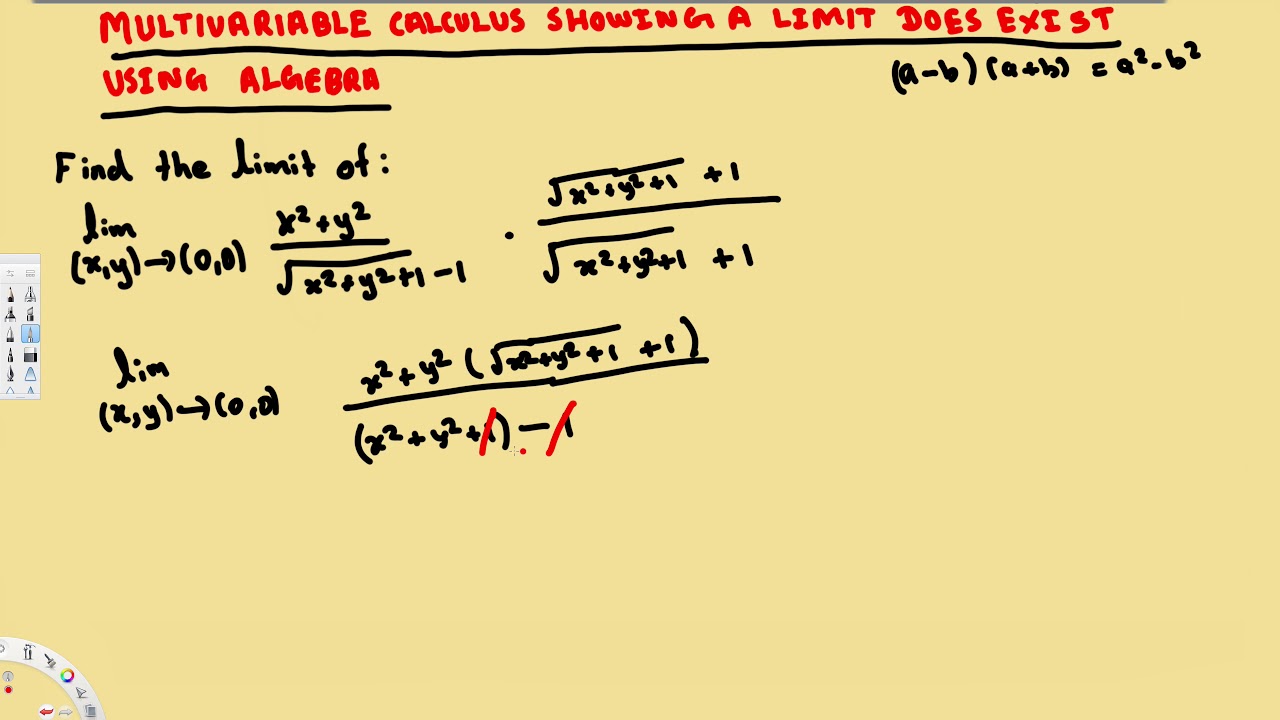 MULTIVARIABLE CALCULUS SHOWING A LIMIT DOES EXIST
USING ALGEBRA
(a-b)(a+b) = a²-b²
Find the limit of:
lim (x,y)→(0,0) x²+y² / √(x²+y²+1) -1 · √(x²+y²+1) +1 / √(x²+y²+1) +1
lim (x,y)→(0,0) x²+y² (√(x²+y²+1) +1) / (x²+y²+1) -1